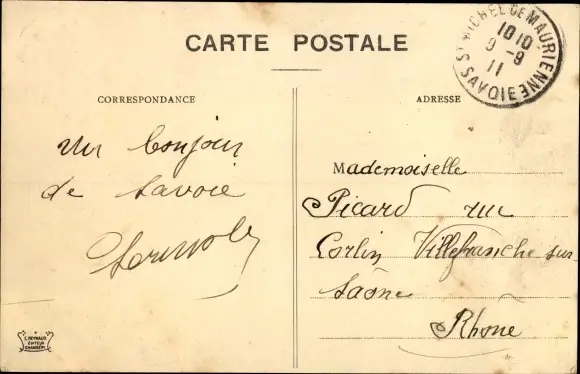 CARTE POSTALE
ST MICHEL DE MAURIENNE
SAVOIE
10 10
9 -9
11
CORRESPONDANCE
ADRESSE
Un bonjour
de Savoie
Mademoiselle
Picard rue
Corlin Villefranche sur
Saône
Rhône
C. REYNAUD
EDITEUR
CHAMBERY